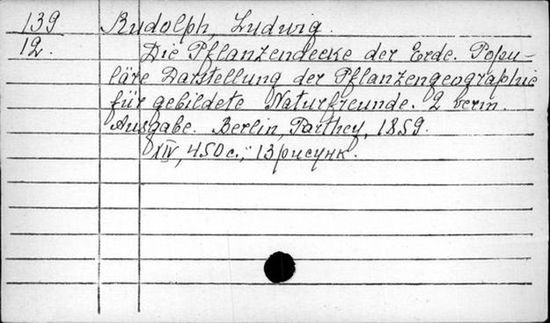 139 Rudolph, Ludwig.
12. Die Pflanzendecke der Erde. Popu-
läre Darstellung der Pflanzengeographie
für gebildete Naturfreunde. 2 verm.
Ausgabe. Berlin, Parthey, 1859.
XIV, 450 с.; 13 рисунк.